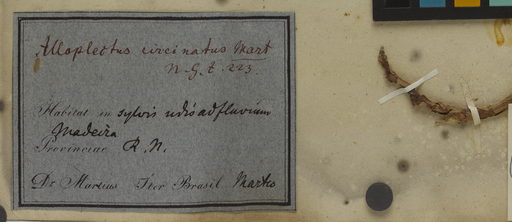 Alloplectus circinatus Mart
N. G. t. 223.
Habitat in sylvis udis ad fluvium
Madeira
Provinciae R. N.
Dr. Martius Iter Brasil Martio